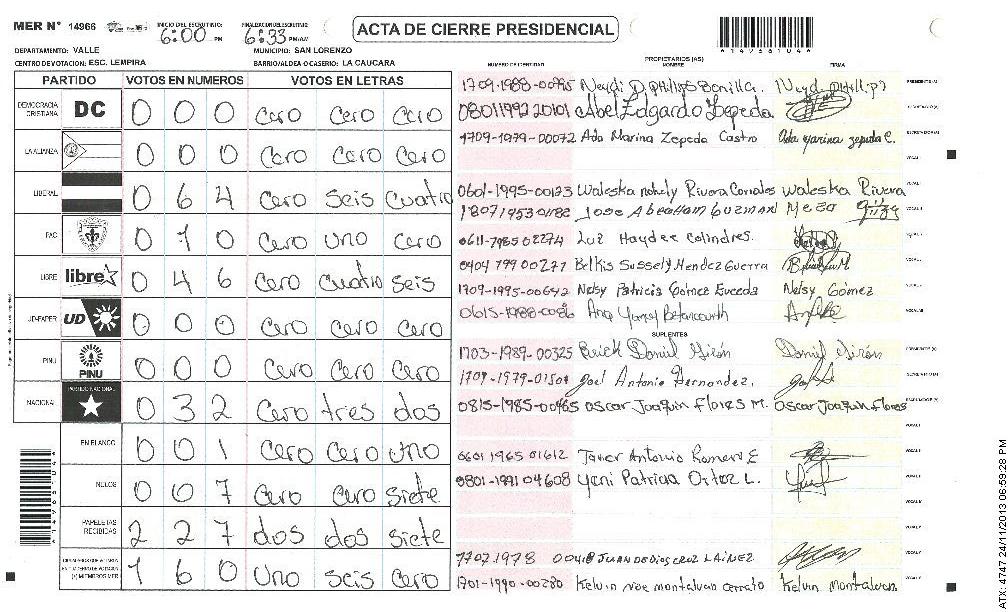 MER N° 14966 INICIO DEL ESCRUTINIO: 6:00 PM FINALIZACION DEL ESCRUTINIO: 6:33 PM/AM ACTA DE CIERRE PRESIDENCIAL
DEPARTAMENTO: VALLE MUNICIPIO: SAN LORENZO
CENTRO DE VOTACION: ESC. LEMPIRA BARRIO/ALDEA O CASERIO: LA CAUCARA
PARTIDO VOTOS EN NUMEROS VOTOS EN LETRAS
DEMOCRACIA CRISTIANA DC 0 0 0 Cero Cero Cero
LA ALIANZA 0 0 0 Cero Cero Cero
LIBERAL 0 6 4 Cero Seis Cuatro
PAC 0 1 0 Cero Uno Cero
LIBRE libre 0 4 6 Cero Cuatro Seis
UD-FAPER UD 0 0 0 Cero Cero Cero
PINU PINU 0 0 0 Cero Cero Cero
NACIONAL PARTIDO NACIONAL 0 3 2 Cero tres dos
EN BLANCO 0 0 1 Cero Cero Uno
NULOS 0 0 7 Cero Cero Siete
PAPELETAS RECIBIDAS 2 2 7 dos dos siete
1 6 0 Uno Seis Cero
PROPIETARIOS (AS)
NUMERO DE IDENTIDAD NOMBRE FIRMA
1709-1988-00795 Neydi D. Phillips Bonilla.
0801199220101 Abel Edgardo Zepeda
1709-1979-00072 Ada Marina Zepeda Castro Ada Marina Zepeda C.
0601-1995-00123 Waleska Nohely Rivera Corrales Waleska Rivera
1807195301182 Jose Abraham Guzman Meza
0611-1985 02274 Luz Haydee Colindres.
0404 799 00277 Belkis Sussely Mendez Guerra
1709-1995-00642 Nelsy Patricia Gómez Euceda Nelsy Gómez
0615-1988-0086 Ana Yansy Betancourth
SUPLENTES
1703-1989-00325 Erick Daniel Girón Daniel Girón
1709-1979-01501 Joel Antonio Hernandez.
0815-1985-00465 Oscar Joaquin Flores M. Oscar Joaquin Flores
0601 1965 01612 Javier Antonio Romero E
0801-1991 04608 Yeni Patricia Ortez L.
1707 1978 00418 JUAN DE DIOS CRUZ LAINEZ
1701-1990-00280 Kelvin Noe montalvan cerrato Kelvin montalvan
ATX: 4747 24/11/2013 06:59:28 PM